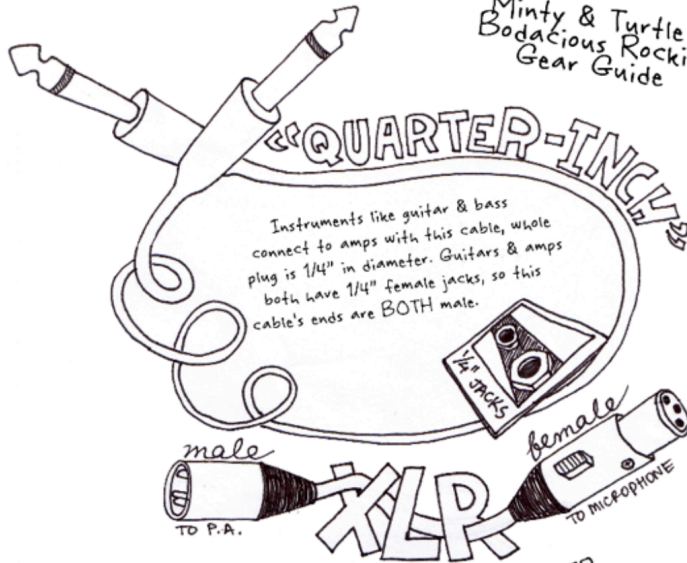 Minty & Turtle
Bodacious
Gear Guide
"QUARTER-INCH"
Instruments like guitar & bass
connect to amps with this cable, whole
plug is 1/4" in diameter. Guitars & amps
both have 1/4" female jacks, so this
cable's ends are BOTH male.
1/4" JACKS
male
female
XLR
TO P.A.
TO MICROPHONE